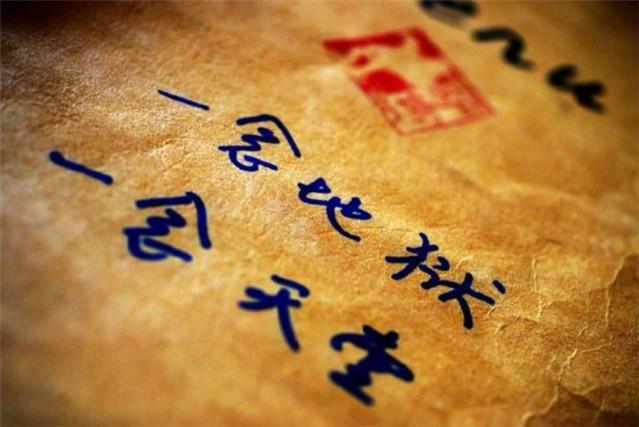 enu
一念地狱
一念天堂